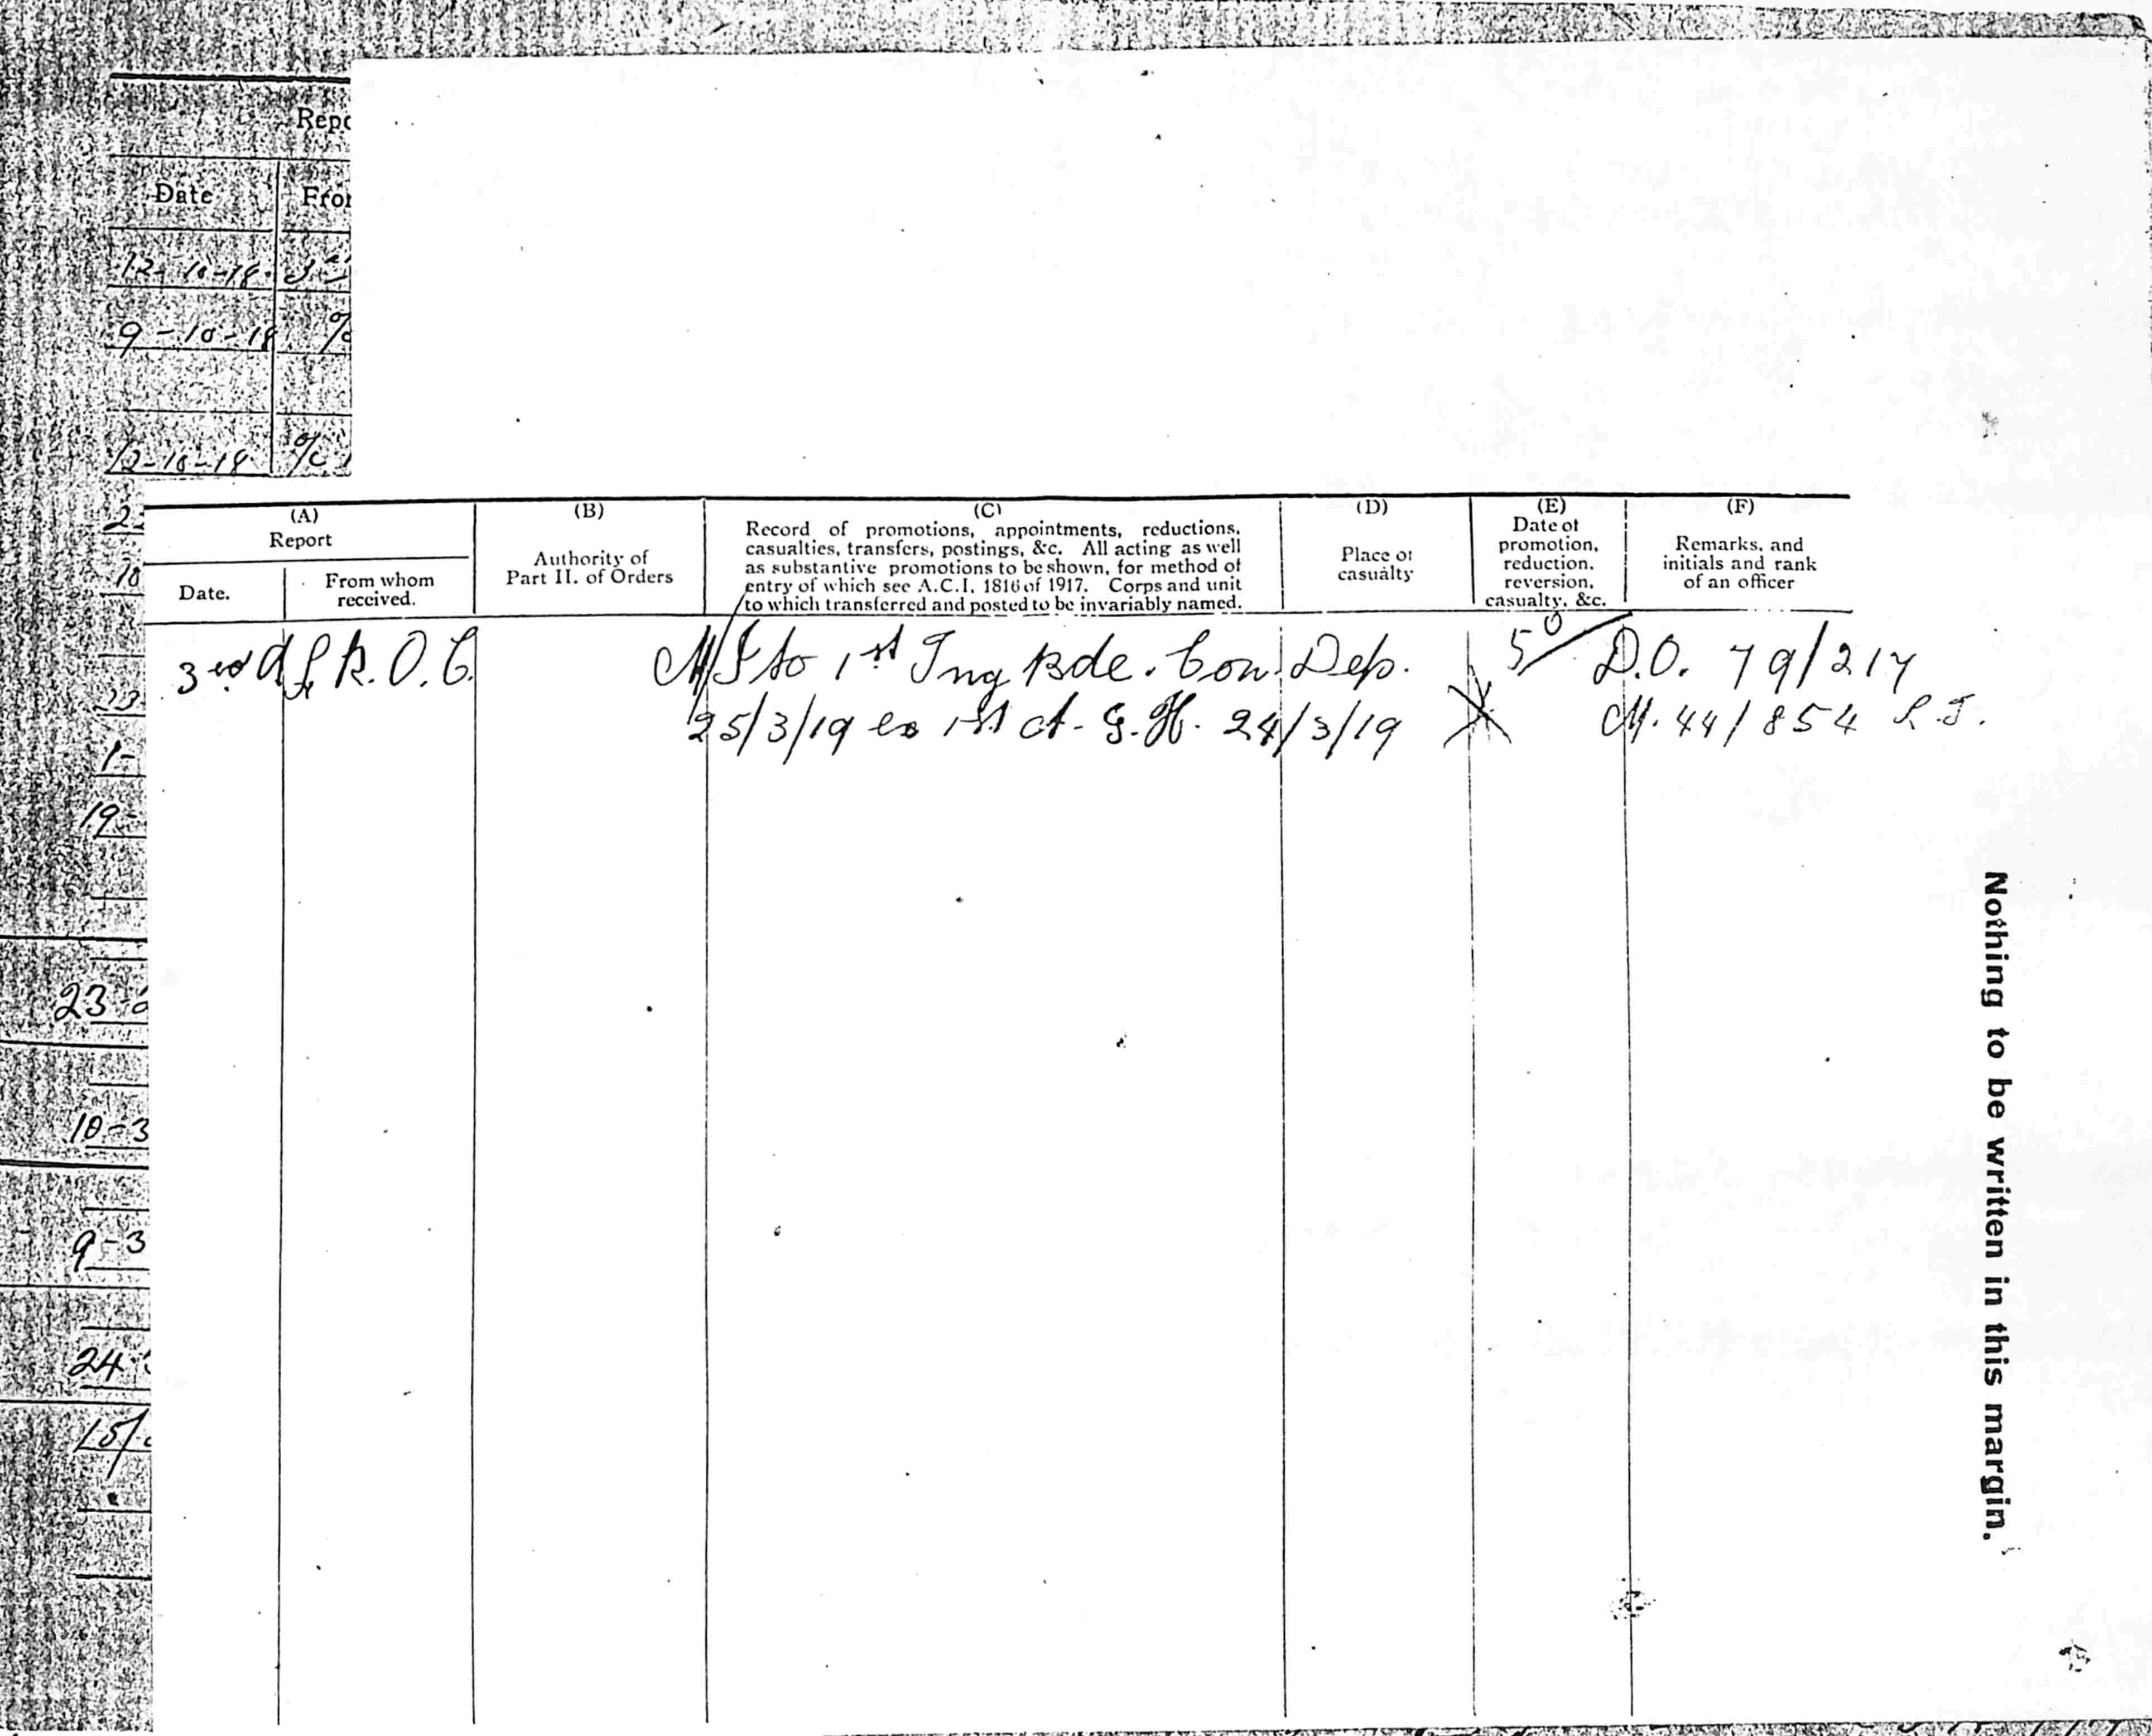 Repo
Date Fro
12-10-18
9-10-18 %
12-10-18 %
(A)
Report
Date. From whom
received.
(B)
Authority of
Part II. of Orders
(C)
Record of promotions, appointments, reductions,
casualties, transfers, postings, &c. All acting as well
as substantive promotions to be shown, for method of
entry of which see A.C.I. 1816 of 1917. Corps and unit
to which transferred and posted to be invariably named.
(D)
Place of
casualty
(E)
Date of
promotion,
reduction,
reversion,
casualty, &c.
(F)
Remarks, and
initials and rank
of an officer
3rd R.O.C. to 1st Tng Bde. Con Dep. 50/ D.O. 79/217
25/3/19 ex 1st A.G.H. 24/3/19 M.44/854
18
1-
19-
23-2
10-3
9-3
24-
15/
Nothing to be written in this margin.